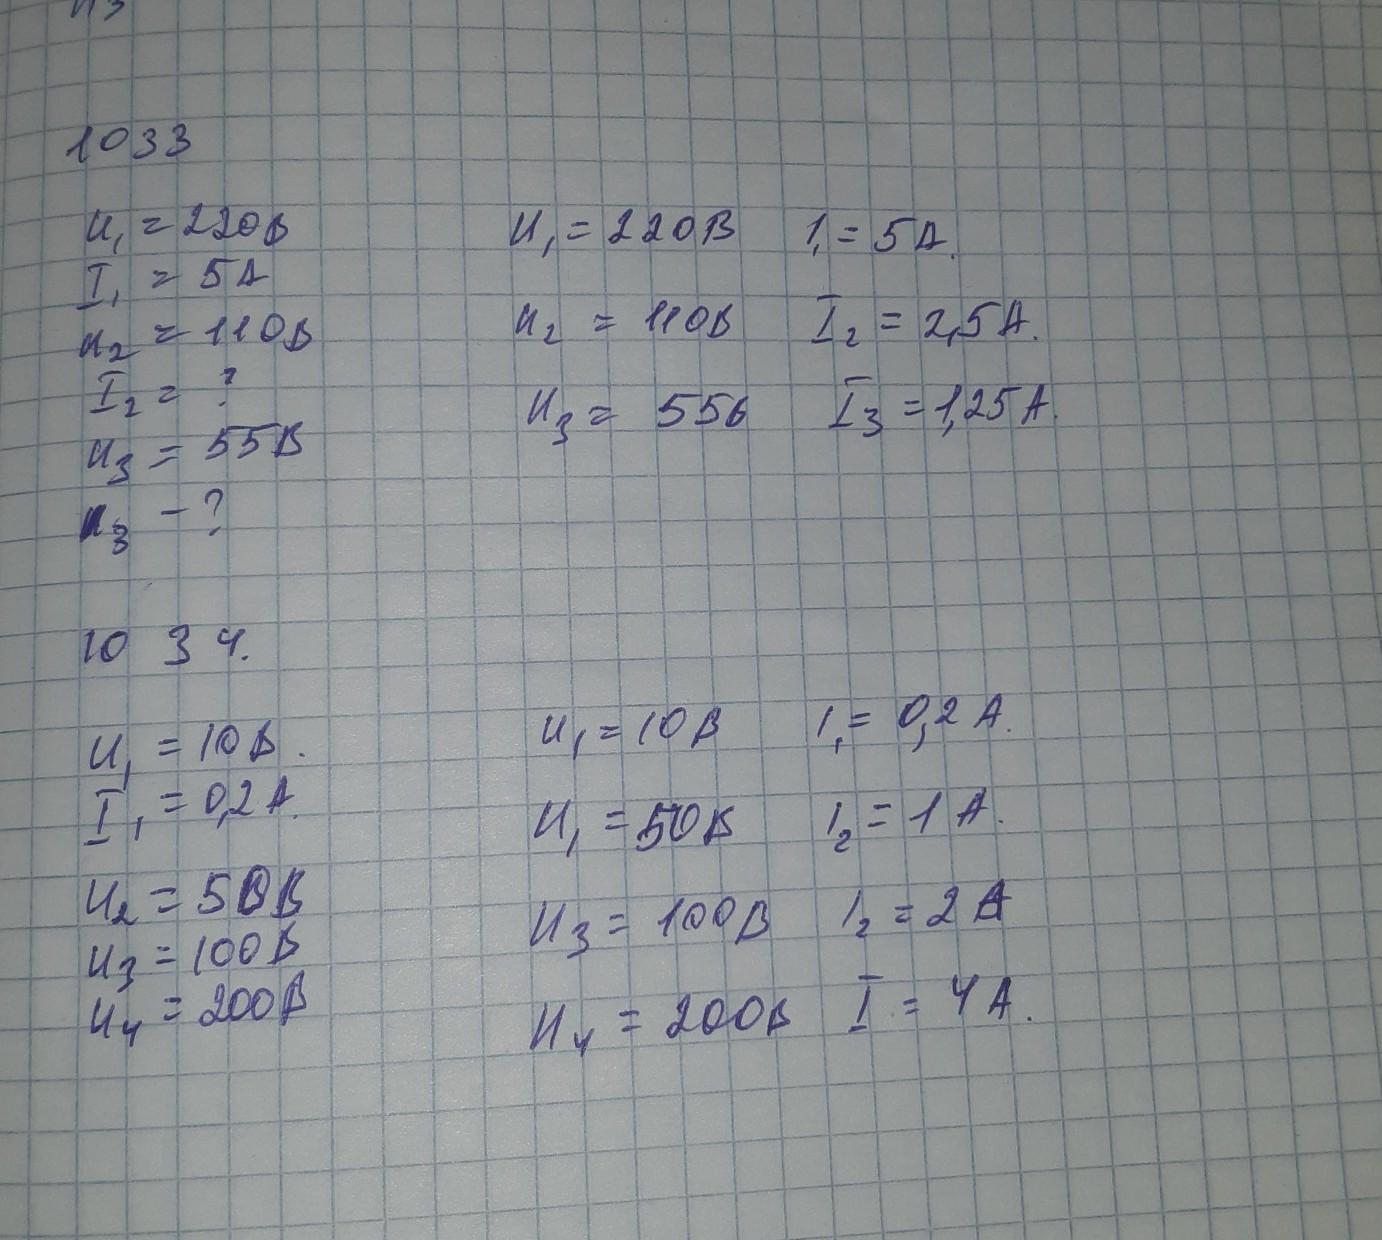 1033
U₁ = 220В
I₁ = 5А
U₂ = 110В
I₂ = ?
U₃ = 55В
U₃ - ?
U₁ = 220В I₁ = 5А.
U₂ = 110В I₂ = 2,5А.
U₃ = 55В I₃ = 1,25А.
1034.
U₁ = 10В.
I₁ = 0,2А.
U₂ = 50В
U₃ = 100В
U₄ = 200В
U₁ = 10В I₁ = 0,2А.
U₁ = 50В I₂ = 1А.
U₃ = 100В I₂ = 2А
U₄ = 200В I = 4А.